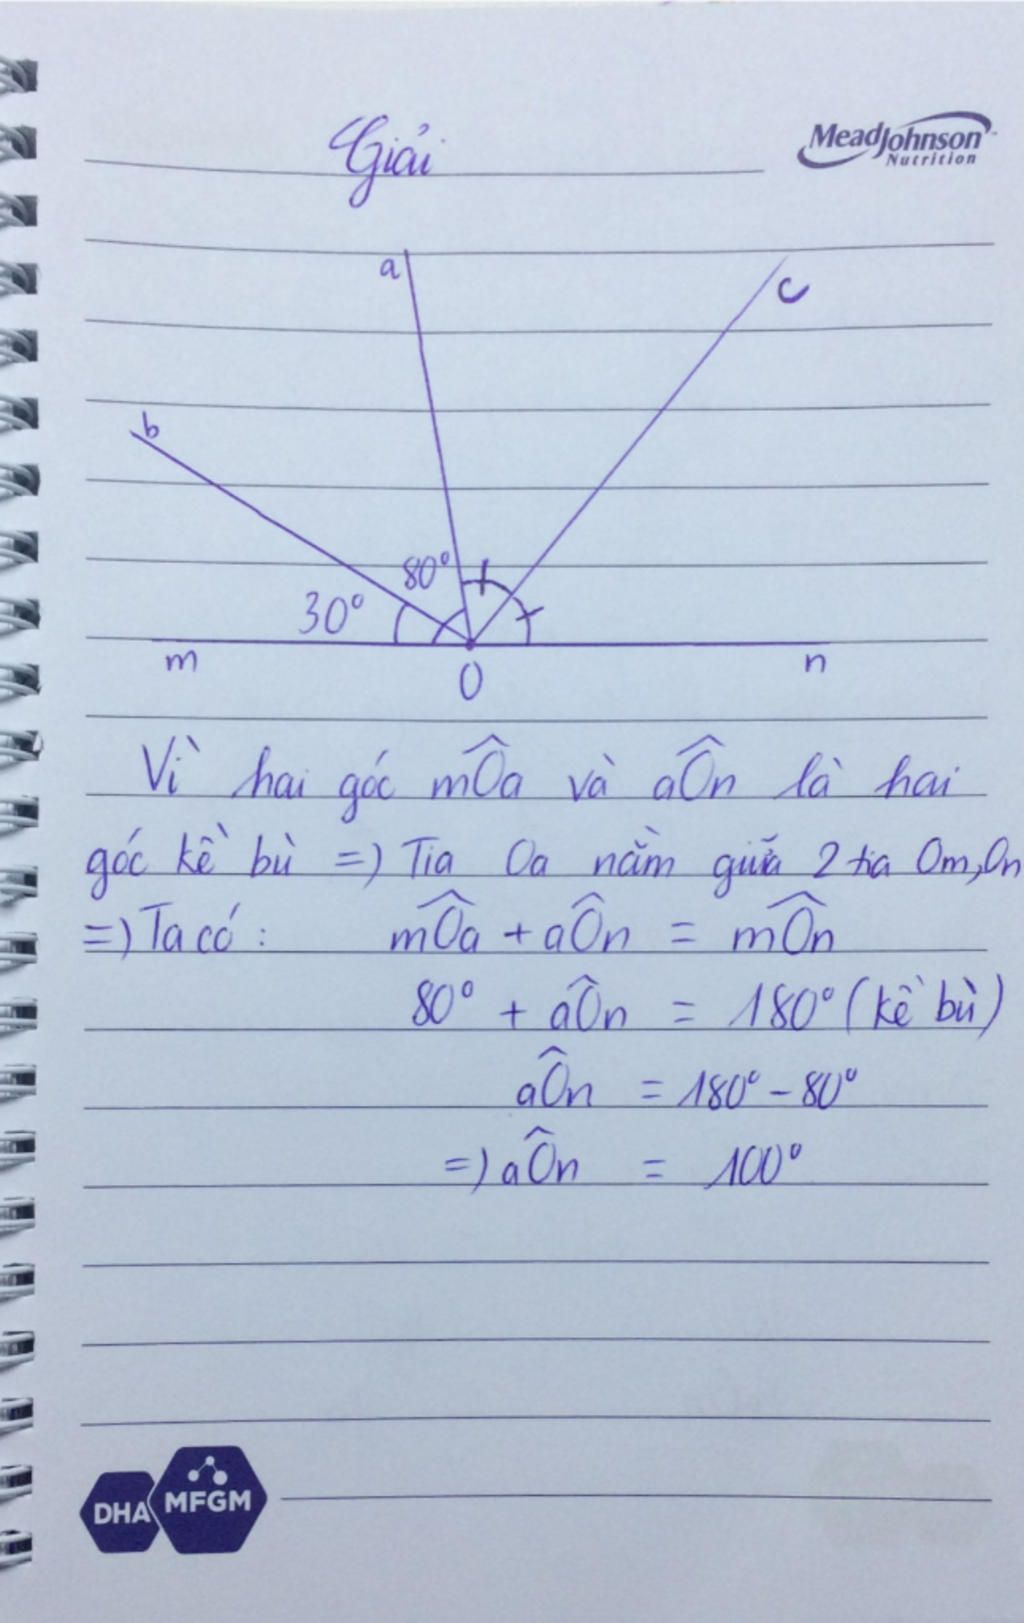 Giải
MeadJohnson
Nutrition
a
c
b
80°
30°
m
O
n
Vì hai góc mÔa và aÔn là hai
góc kề bù =) Tia Oa nằm giữa 2 tia Om,On
=) Ta có : mÔa + aÔn = mÔn
80° + aÔn = 180° (kề bù)
aÔn = 180° - 80°
=) aÔn = 100°
DHA MFGM